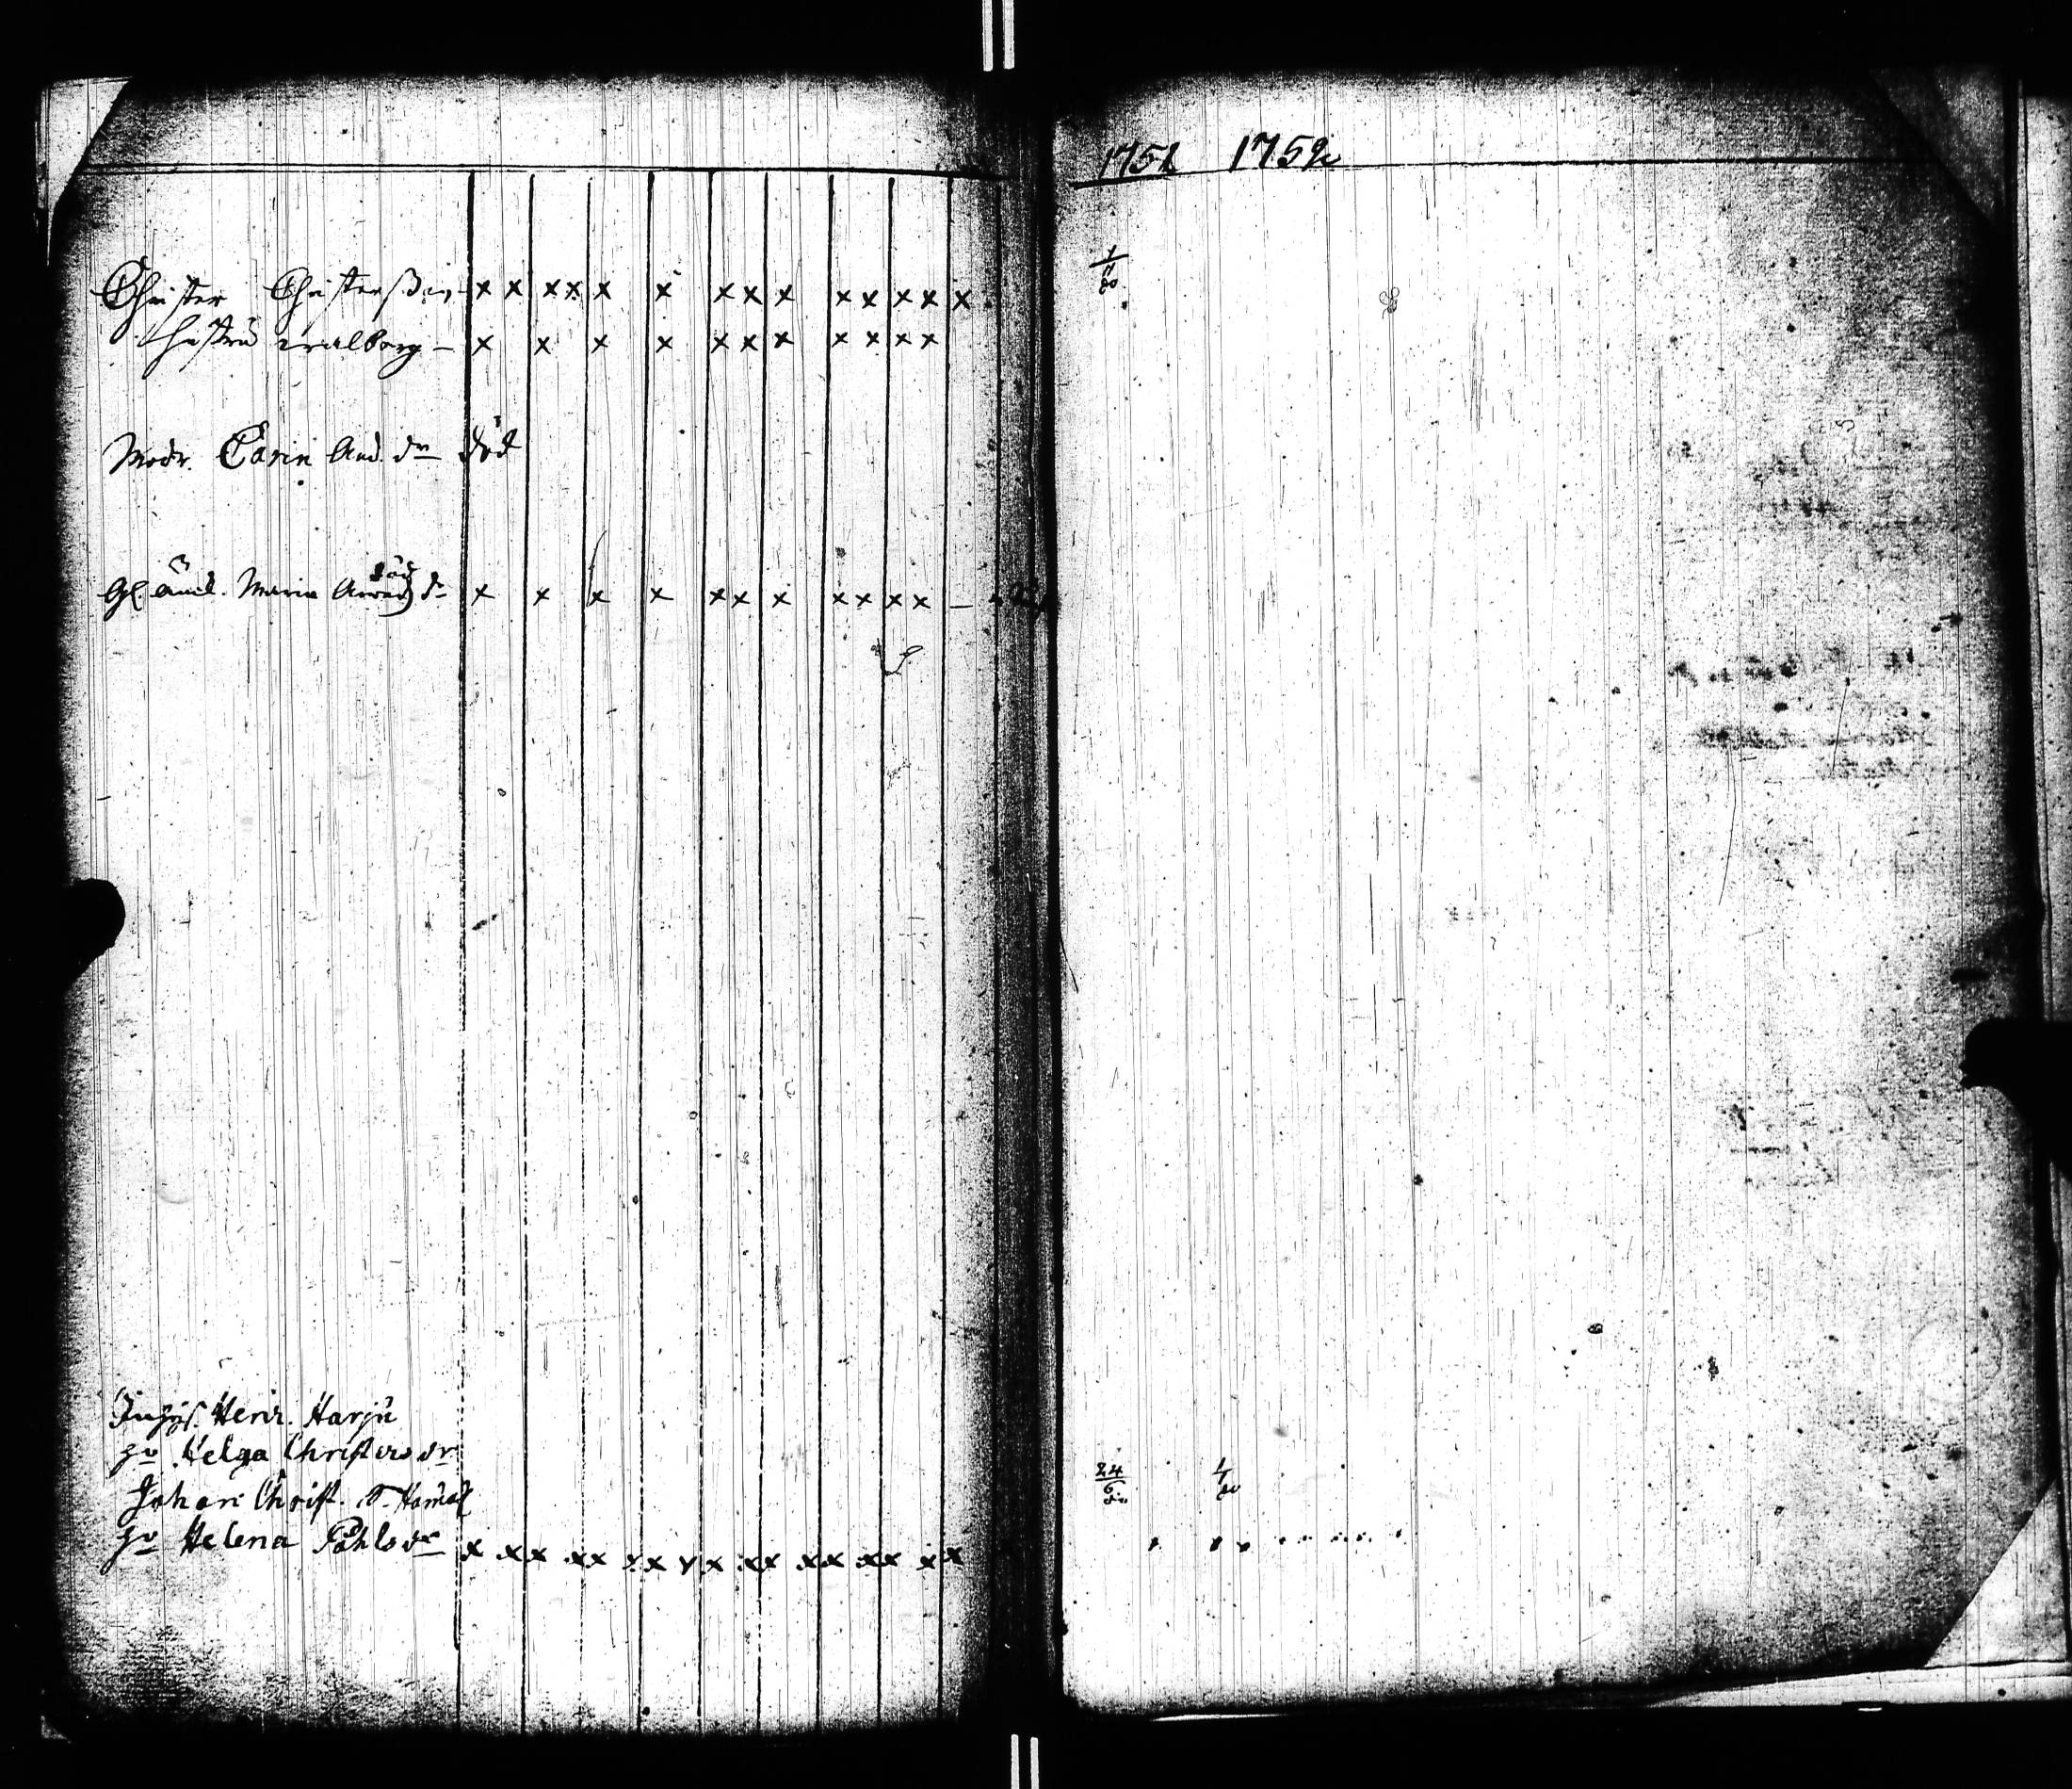 Christer Christersson x x x x x x x x x x x x x x
Hustru walborg – x x x x x x x x x x x
Modr. Carin And. dr död
Gl. änck. Maria dr x x x x x x x x x x x –
Inhys. Henr. Harju
hu Helga Christersdr
Johan Christ. S.
hu Helena Påhlsdr x x x x x x x x x x x x x x x x x
1758 1759
1/11
24/6 1/1